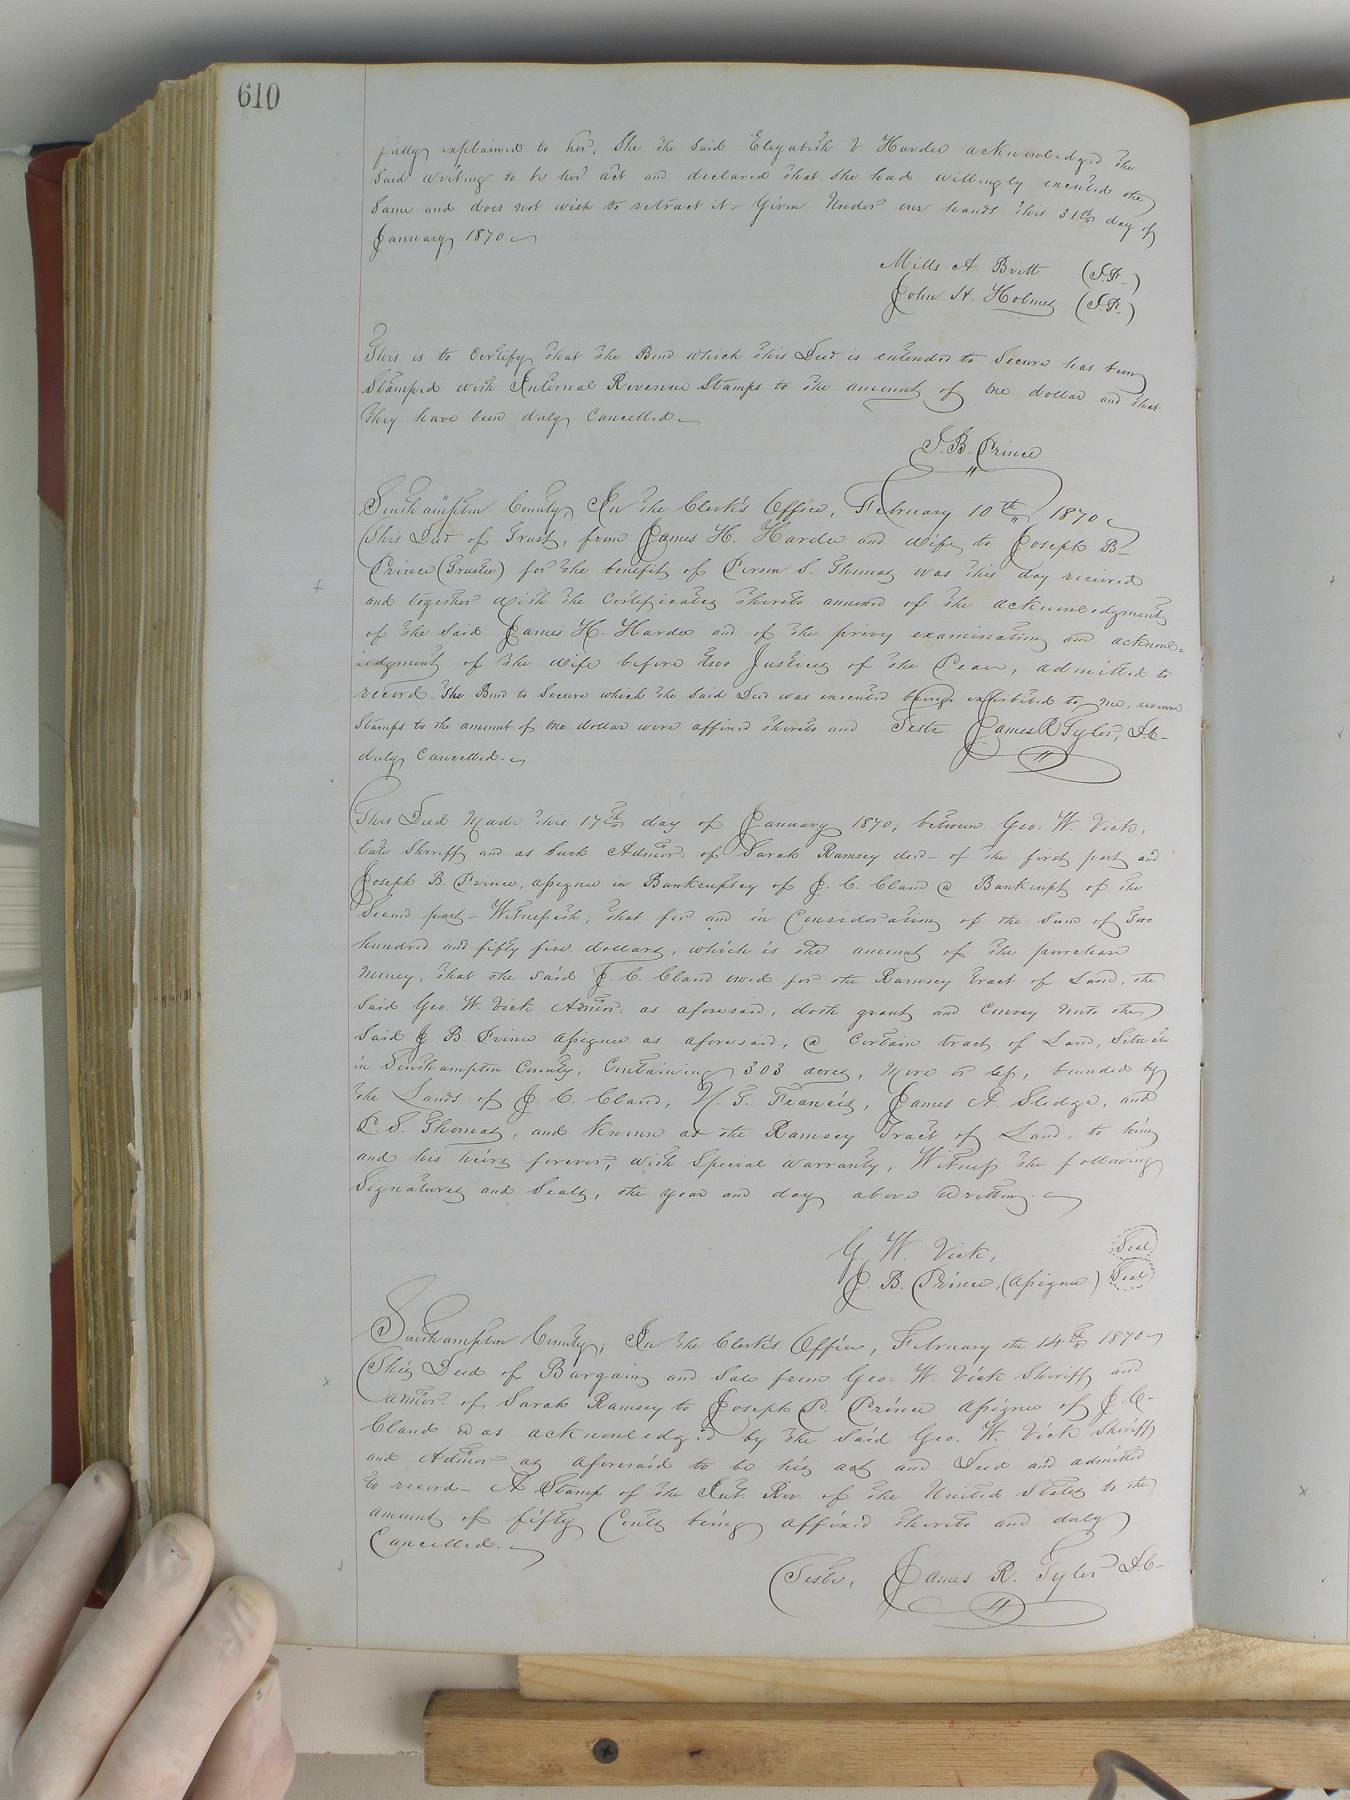 610
fully explained to her, She the said Elizabeth V. Hardee acknowledged the
said writing to be her act and declared that she had willingly executed the
same and does not wish to retract it. Given Under our hands this 31st day of
January 1870
Mills A. Britt (J.P.)
John H. Holmes (J.P.)
This is to Certify that the Bond which this Deed is entended to Secure has been
Stamped with Internal Revenue Stamps to the amount of One dollar and that
they have been duly Cancelled.
J. B. Prince
Southampton County, In the Clerk's Office, February 10th, 1870
This Deed of Trust, from James H. Hardee and wife to Joseph B-
Prince (Trustee) for the benefit of S. Thomas was this day received
and together with the Certificates thereto annexed of the acknowledgment
of the said James H. Hardee and of the privy examination and acknowl=
edgment of the wife before two Justices of the Peace, admitted to
record. The Bond to Secure which the said Deed was executed being exhibited to me, revenue
Stamps to the amount of One dollar were affixed thereto and Teste James R Tyler, D.C-
duly Cancelled.
This Deed Made this 17th day of January 1870, between Geo: W. Vick,
late Sheriff and as such Admor. of Sarah Ramsey decd- of the first part and
Joseph B. Prince, assignee in Bankruptcy of J. C. Claud a Bankrupt of the
Second part- Witnesseth, that for and in Consideration of the Sum of Two
hundred and fifty five dollars, which is the amount of the purchase
money, that the said J. C. Claud owed for the Ramsey tract of Land, the
said Geo. W. Vick Admor: as aforesaid, doth grant and Convey Unto the
Said J. B. Prince assignee as aforesaid, a Certain tract of Land, Situate
in Southampton County, Containing 303 acres, More or less, bounded by
the Lands of J C. Claud, T. Francis, James A. Sledge, and
P. S. Thomas, and Known as the Ramsey Tract of Land, to him
and his heirs forever, with Special warranty, Witness the following
Signatures and Seals, the year and day above written.
G. W. Vick, Seal
J. B. Prince, (assignee) Seal
Southampton County, In the Clerk's Office, February the 14th 1870
This Deed of Bargain and Sale from Geo: W. Vick Sheriff and
admor. of Sarah Ramsey to Joseph P. Prince assignee of J. C-
Claud was acknowledged by the said Geo. W. Vick Sheriff
and Admor as aforesaid to be his act and Deed and admitted
to record- A Stamp of the Int. Rev. of the United States to the
amount of fifty Cents being affixed thereto and duly
Cancelled.
Teste, James R. Tyler D.C-